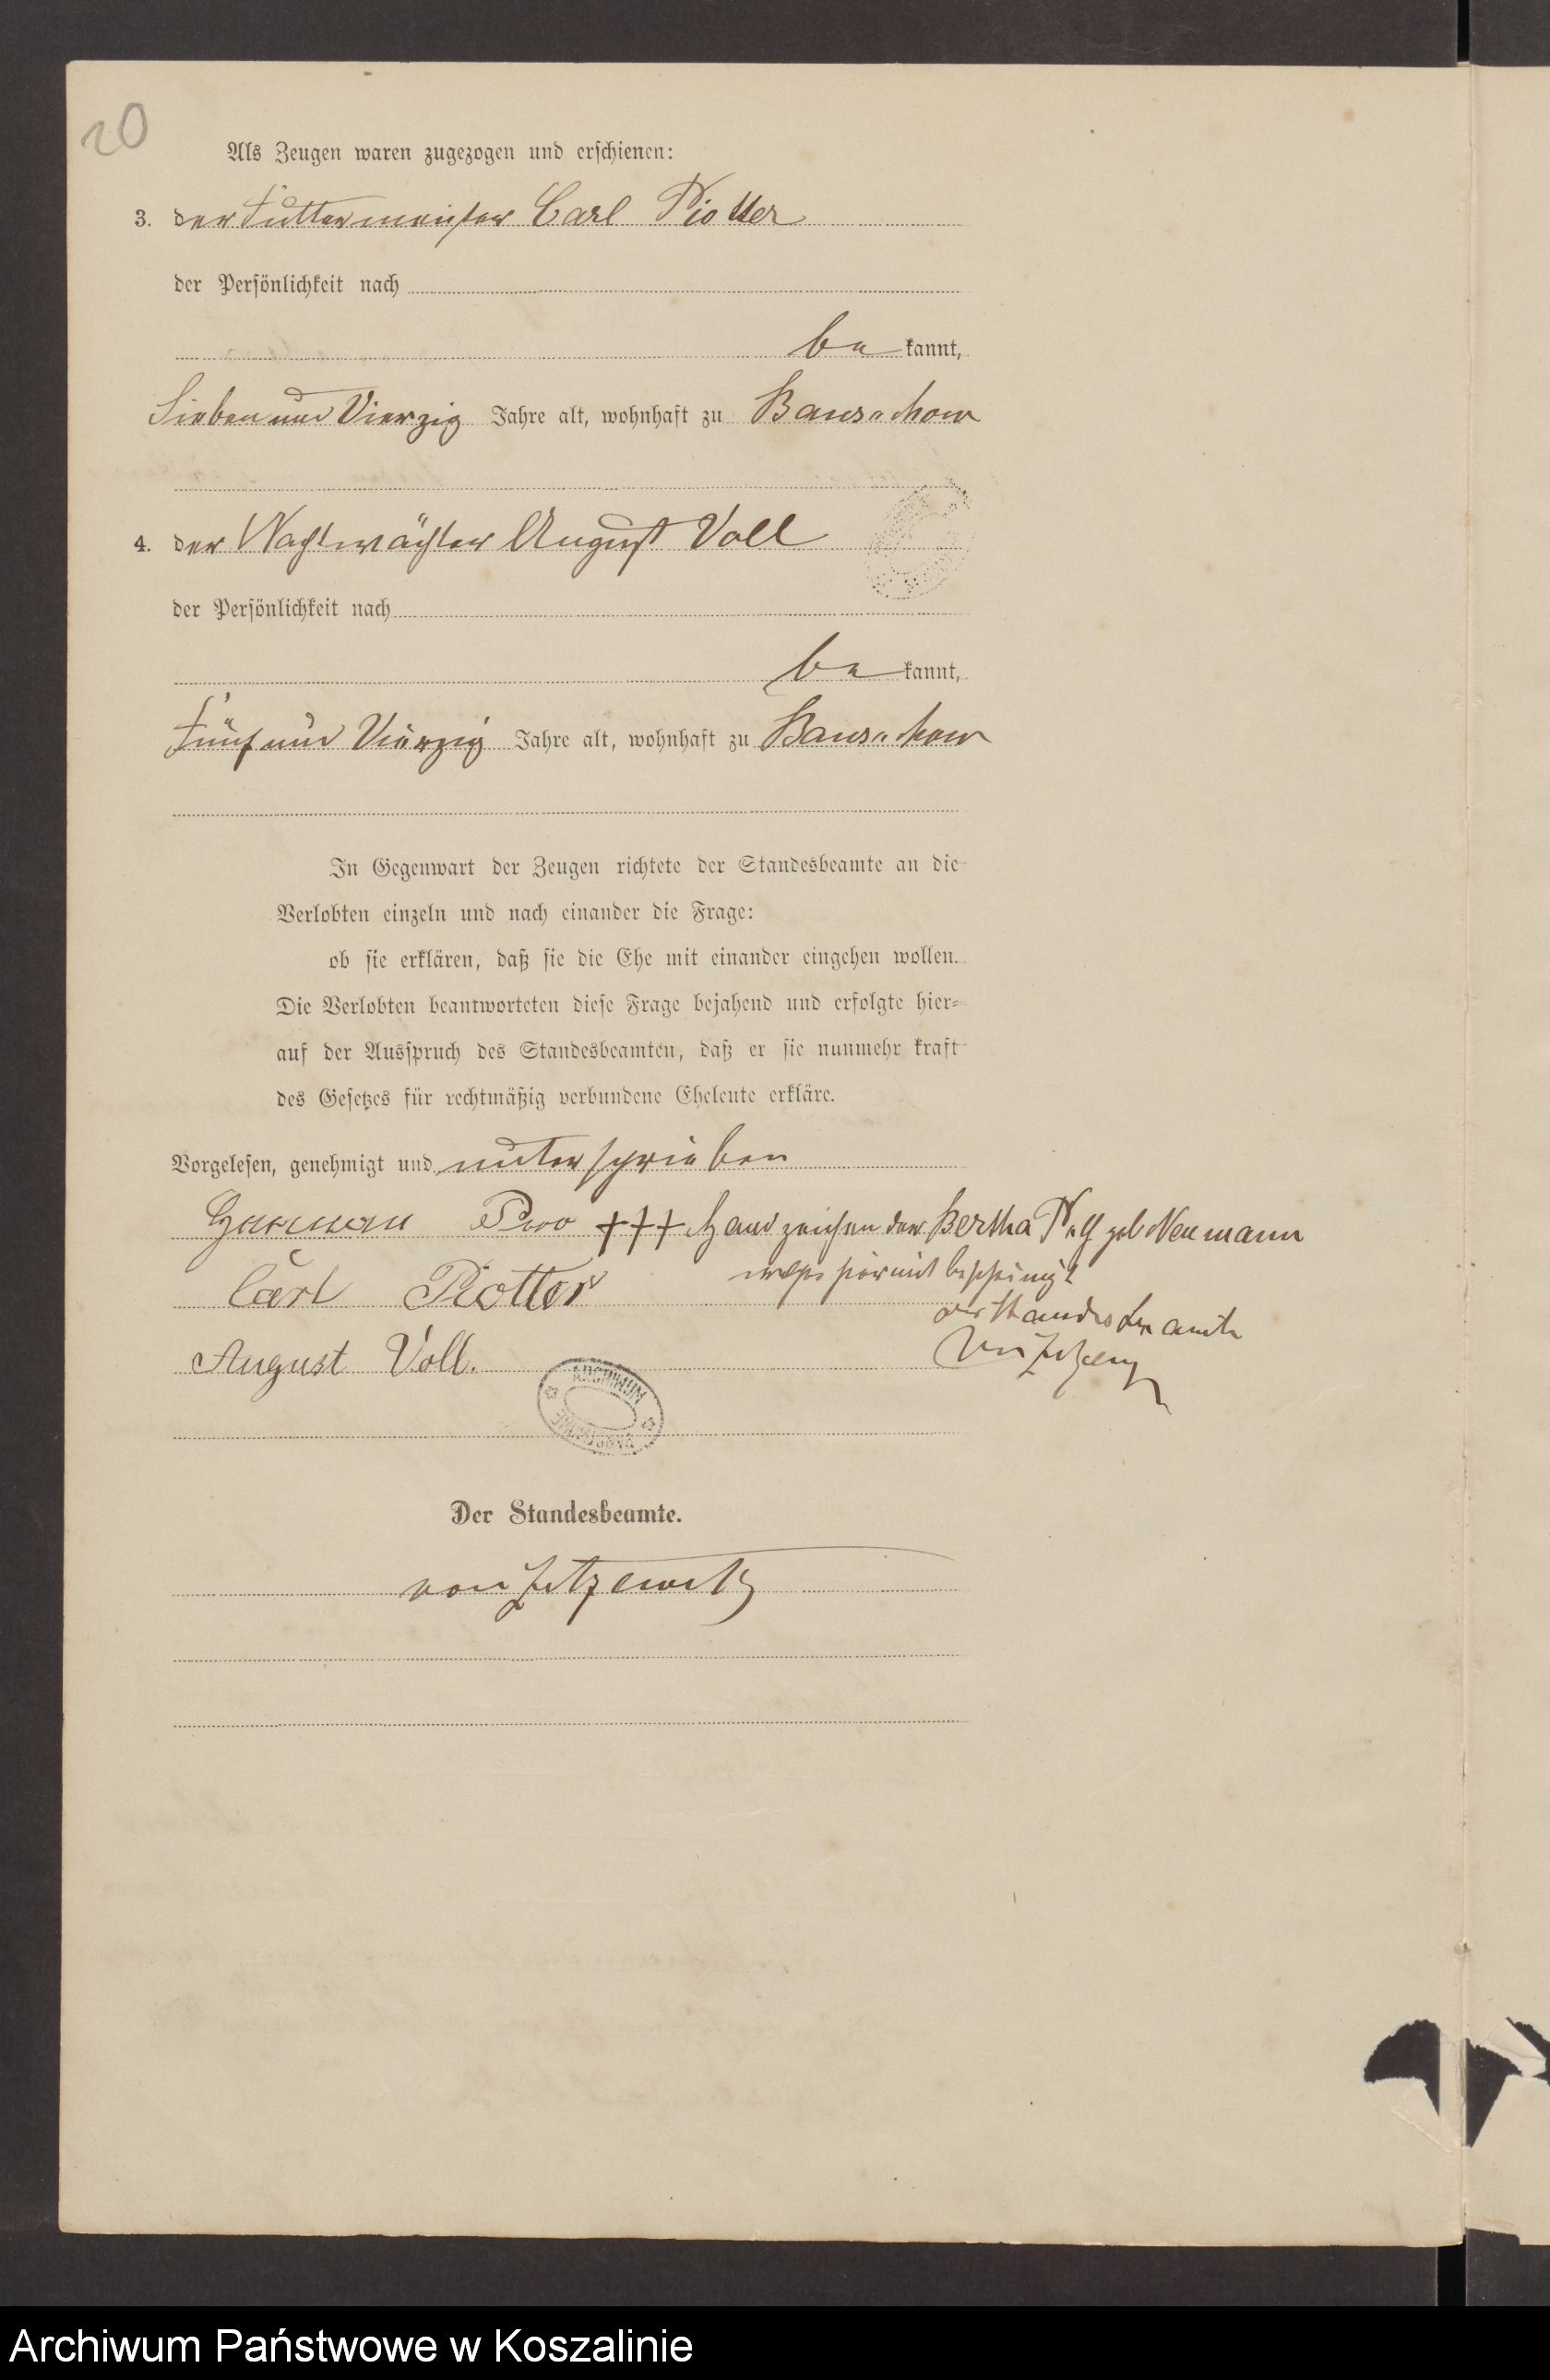 20
Als Zeugen waren zugezogen und erschienen:
3. der Futtermeister Carl Piotter
der Persönlichkeit nach
be kannt,
Sieben und Vierzig Jahre alt, wohnhaft zu
4. der Nachtwächter August Voll
der Persönlichkeit nach
be kannt,
Fünf und Vierzig Jahre alt, wohnhaft zu
In Gegenwart der Zeugen richtete der Standesbeamte an die
Verlobten einzeln und nach einander die Frage:
ob sie erklären, daß sie die Ehe mit einander eingehen wollen.
Die Verlobten beantworteten diese Frage bejahend und erfolgte hier=
auf der Ausspruch des Standesbeamten, daß er sie nunmehr kraft
des Gesetzes für rechtmäßig verbundene Eheleute erkläre.
Vorgelesen, genehmigt und unterschrieben
+++ Handzeichen der Bertha geb Neumann
Carl Piotter welches hiermit bescheinigt
der Standesbeamte
August Voll.
ARCHIWUM
Der Standesbeamte.
von Zitzewitz
Archiwum Państwowe w Koszalinie